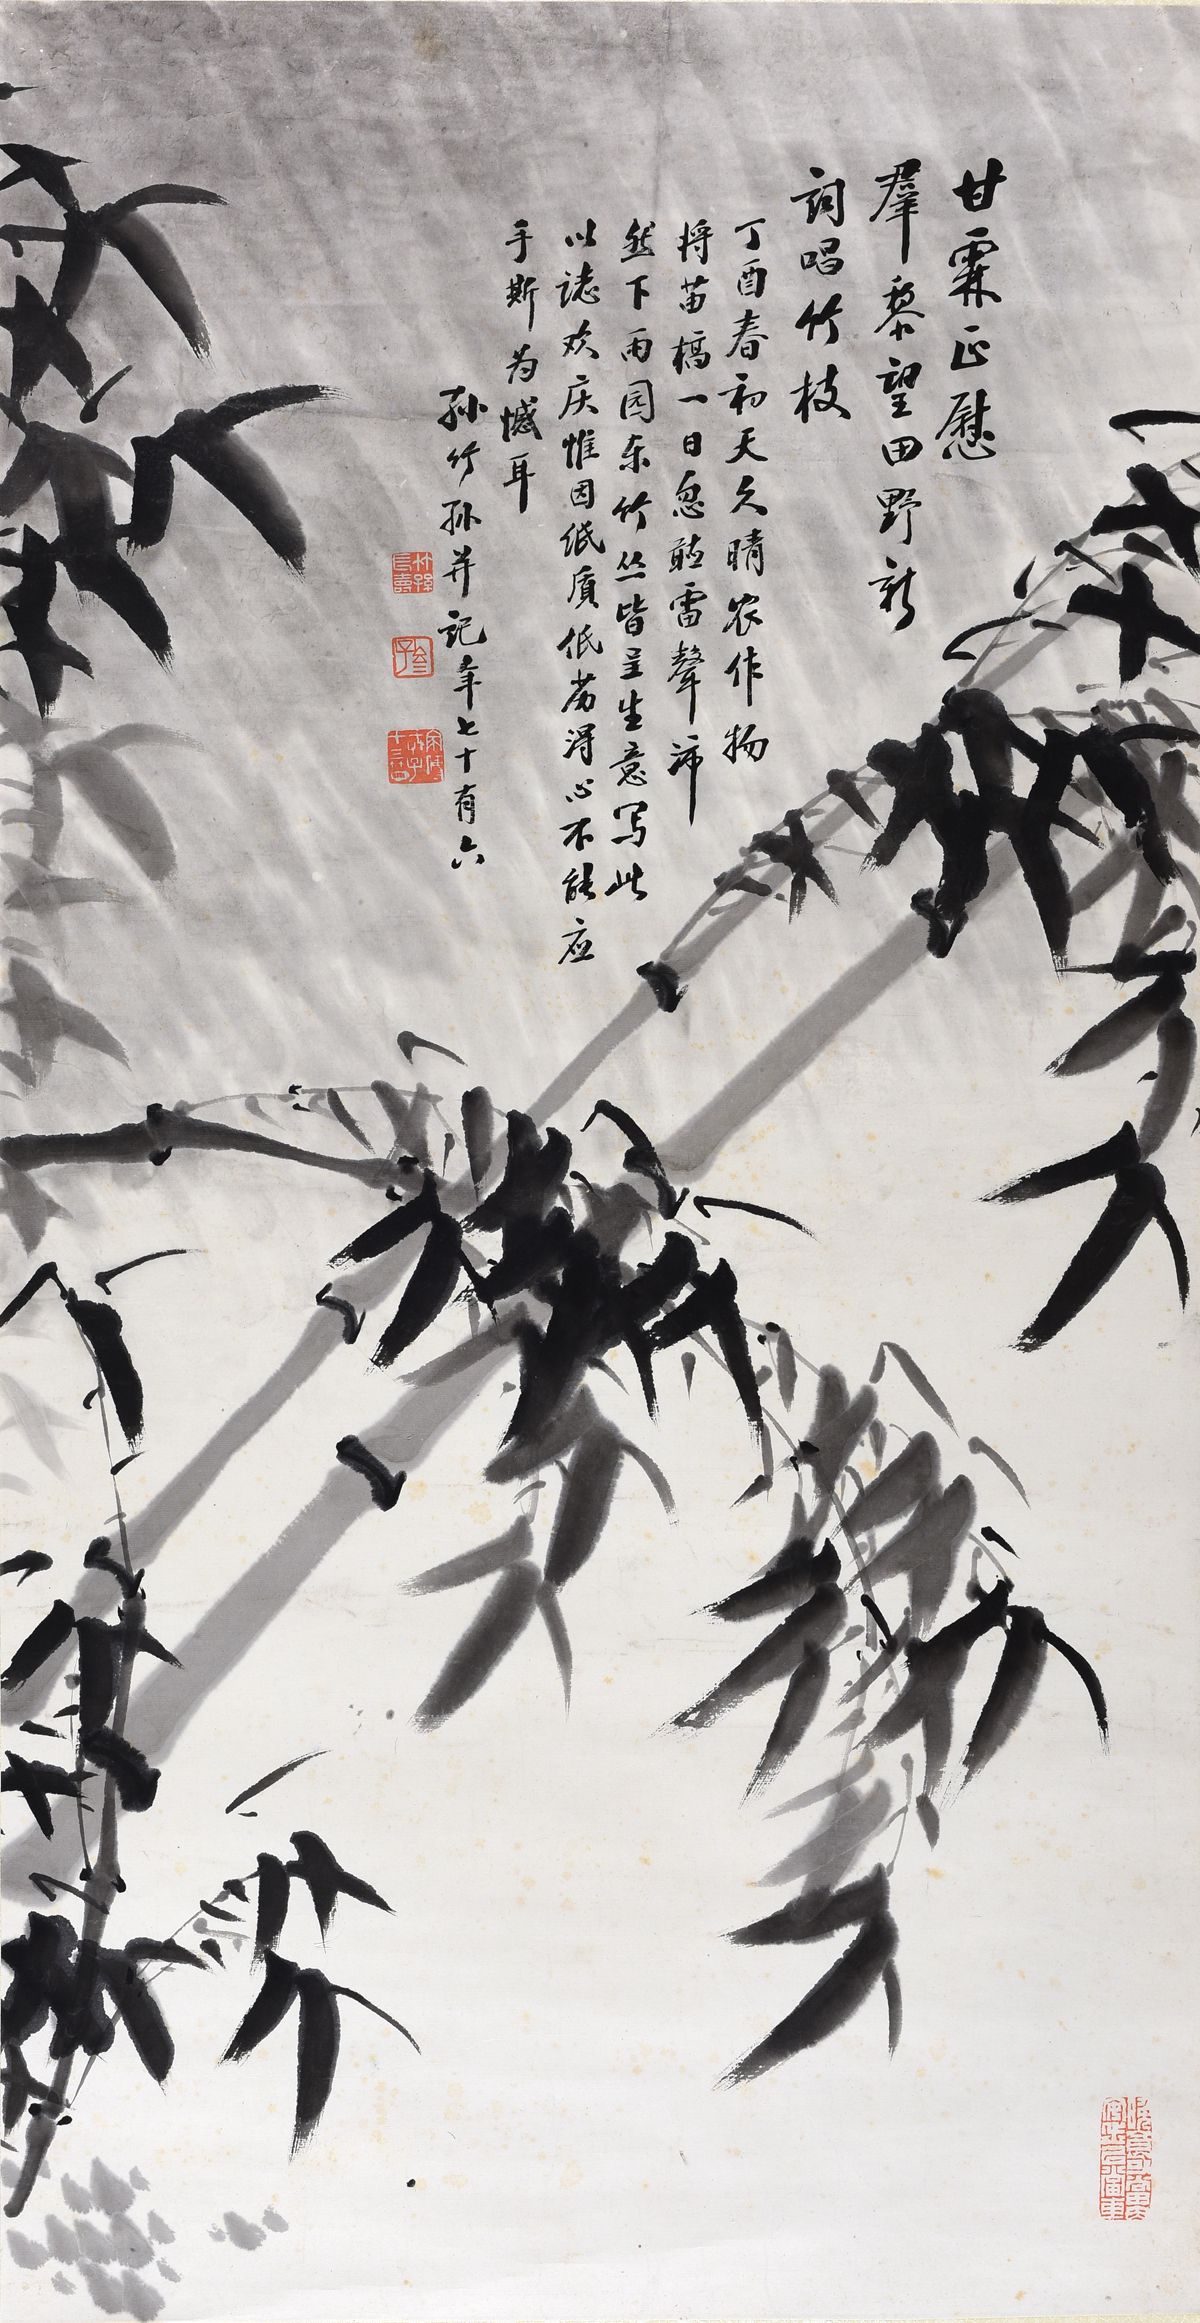 甘霖正慰
羣黎望田野新
詞唱竹枝
丁酉春初天久晴农作物
将苗槁一日忽聼雷聲沛
然下雨园东竹丛皆呈生意写此
以誌欢庆惟因纸質低劣得心不能应
手斯为憾耳
孙竹孙并記年七十有六